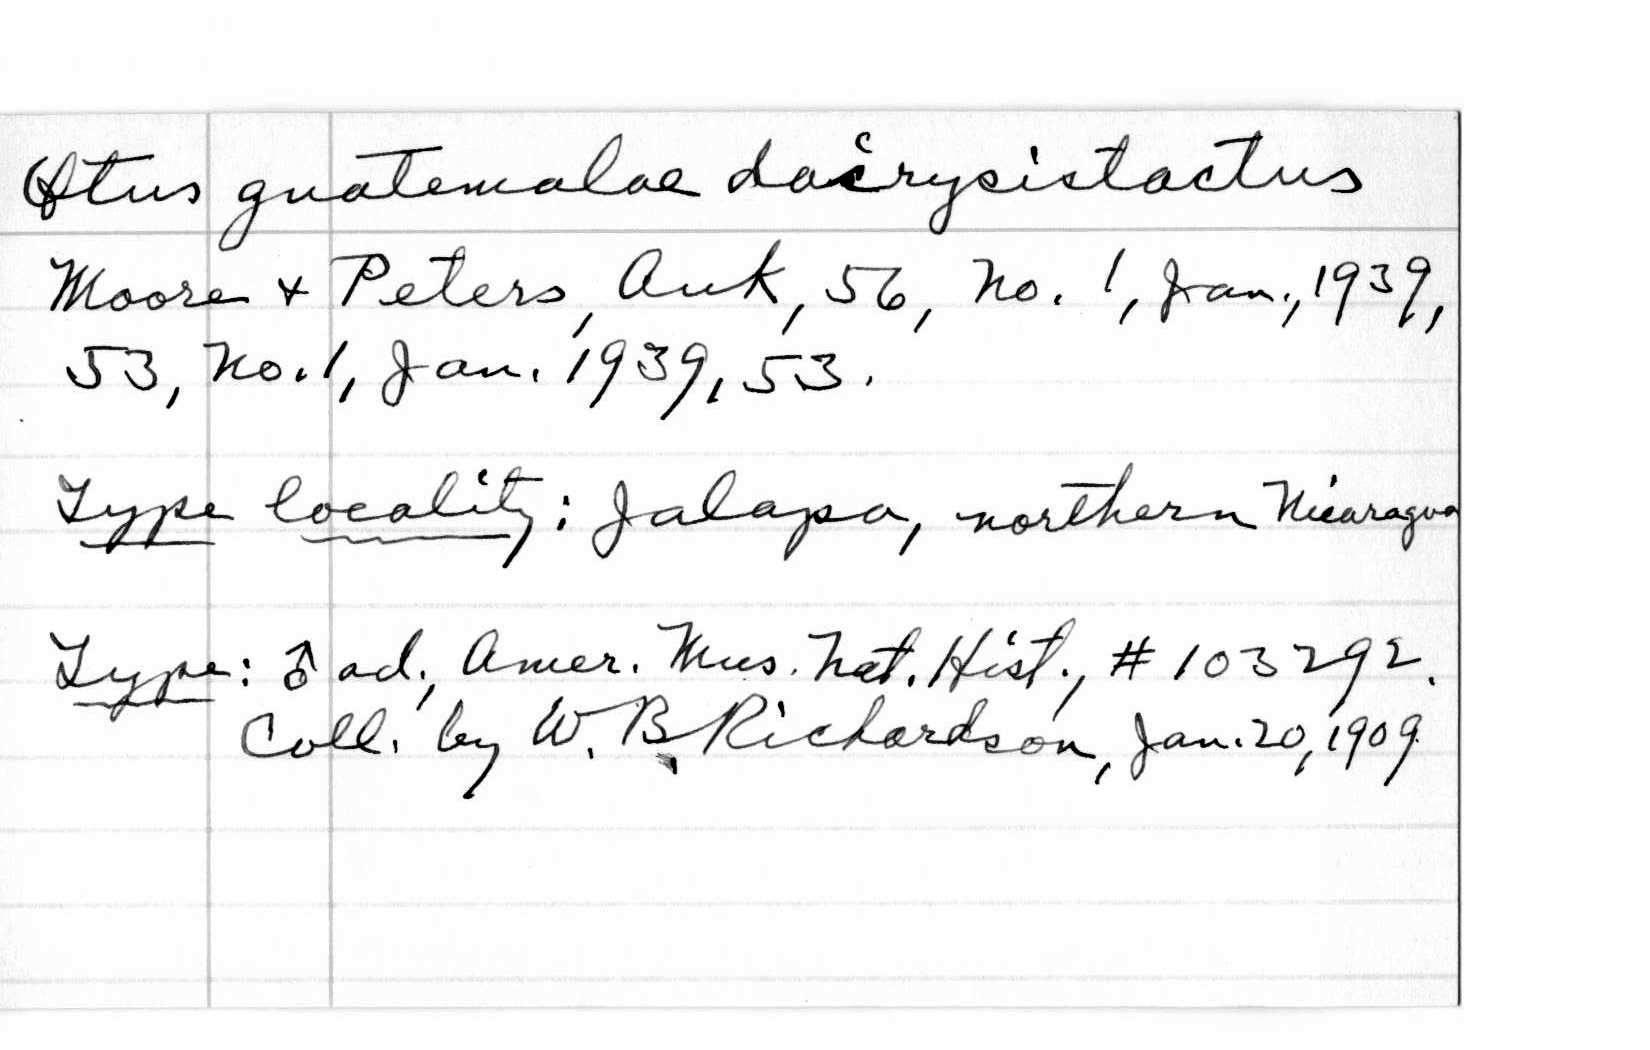 Otus guatemalae dacrysistactus
Moore & Peters, Auk, 56, No. 1, Jan., 1939,
53, No. 1, Jan. 1939, 53.
Type locality: Jalapa, northern Nicaragua
Type: ♂ ad., Amer. Mus. Nat. Hist., # 103292.
Coll. by W. B. Richardson, Jan. 20, 1909